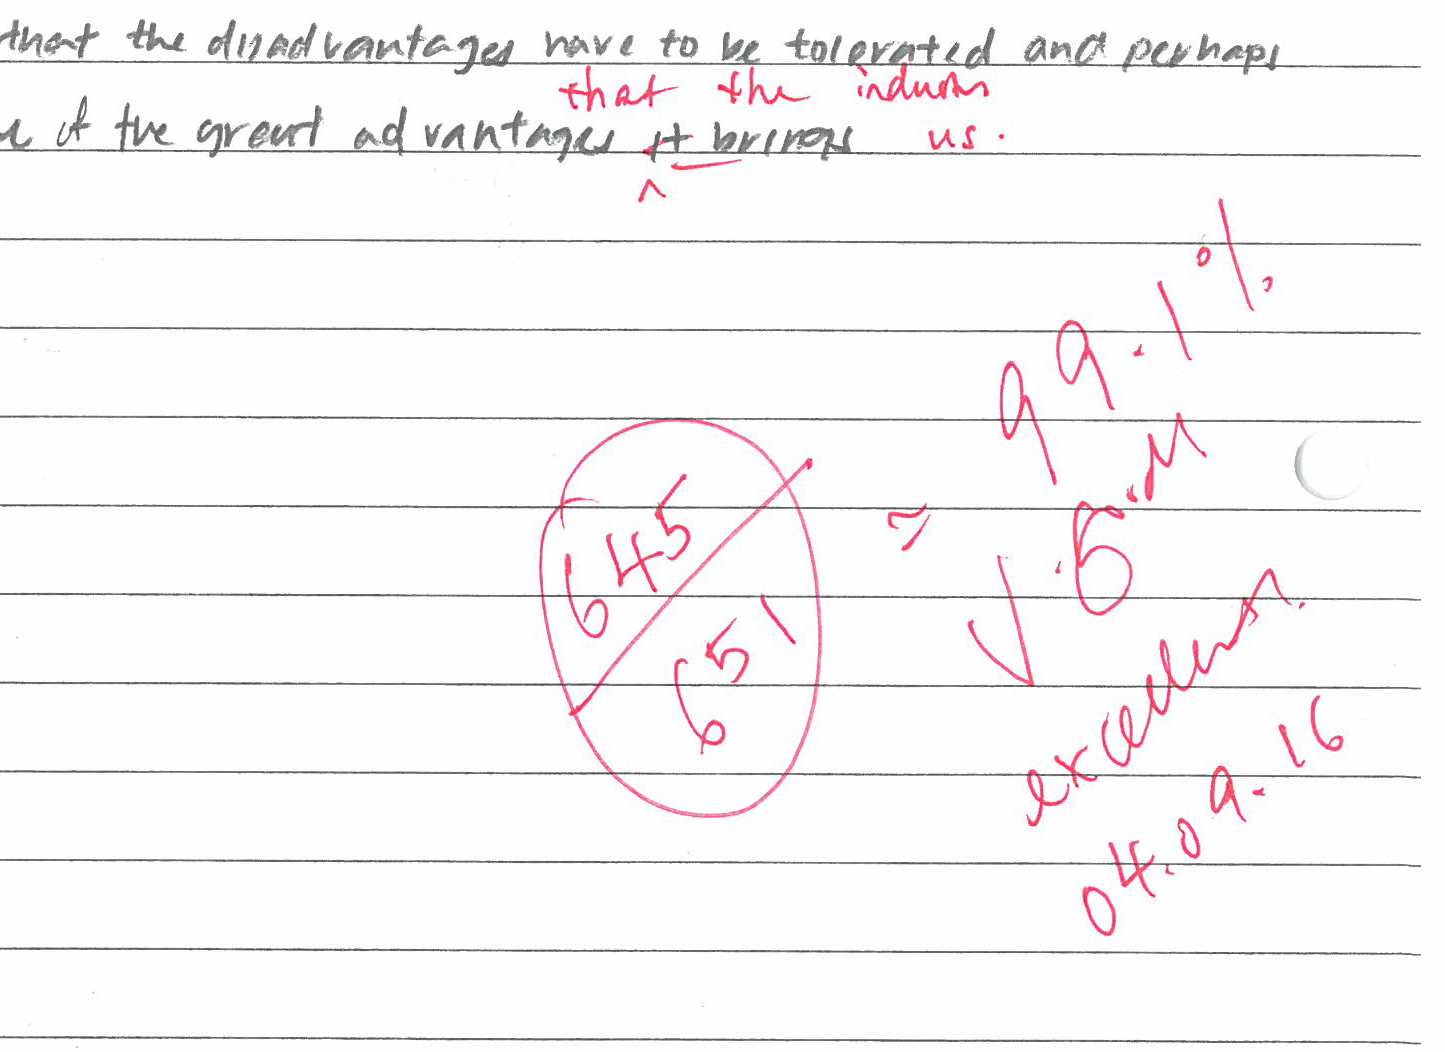 that the disadvantages have to be tolerated and perhaps
that the industry
of the great advantages it brings us.
99.1%
645
651
≈
V.G.M
excellent.
04.09.16